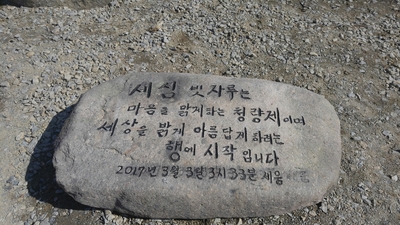 세심 빗자루는
마음을 맑게하는 청량제이며
세상을 밝게 아름답게 하려는
행에 시작 입니다
2017년 3월 3일 3시33분 세움